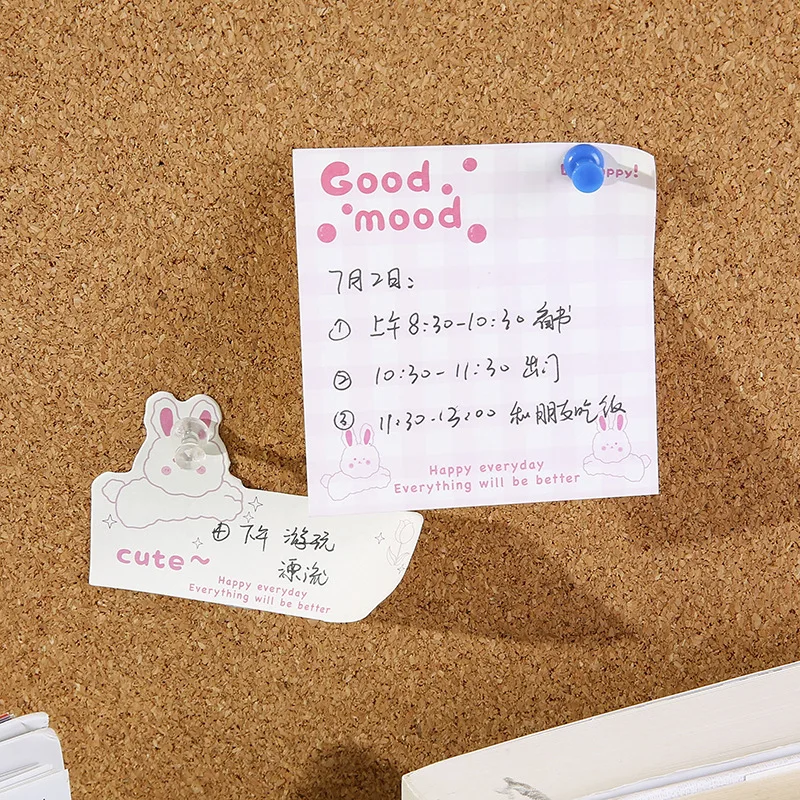 Good
mood
7月2日:
① 上午8:30-10:30 看书
② 10:30-11:30 出门
③ 11:30-13:00 和朋友吃饭
Happy everyday
Everything will be better
④ 下午 游玩
漂流
cute~
Happy everyday
Everything will be better